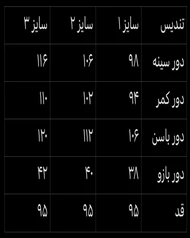 تندیس سایز ۱ سایز ۲ سایز ۳
دور سینه ۹۸ ۱۰۶ ۱۱۶
دور کمر ۹۴ ۱۰۲ ۱۱۰
دور باسن ۱۰۶ ۱۱۲ ۱۲۰
دور بازو ۳۸ ۴۰ ۴۲
قد ۹۵ ۹۵ ۹۵